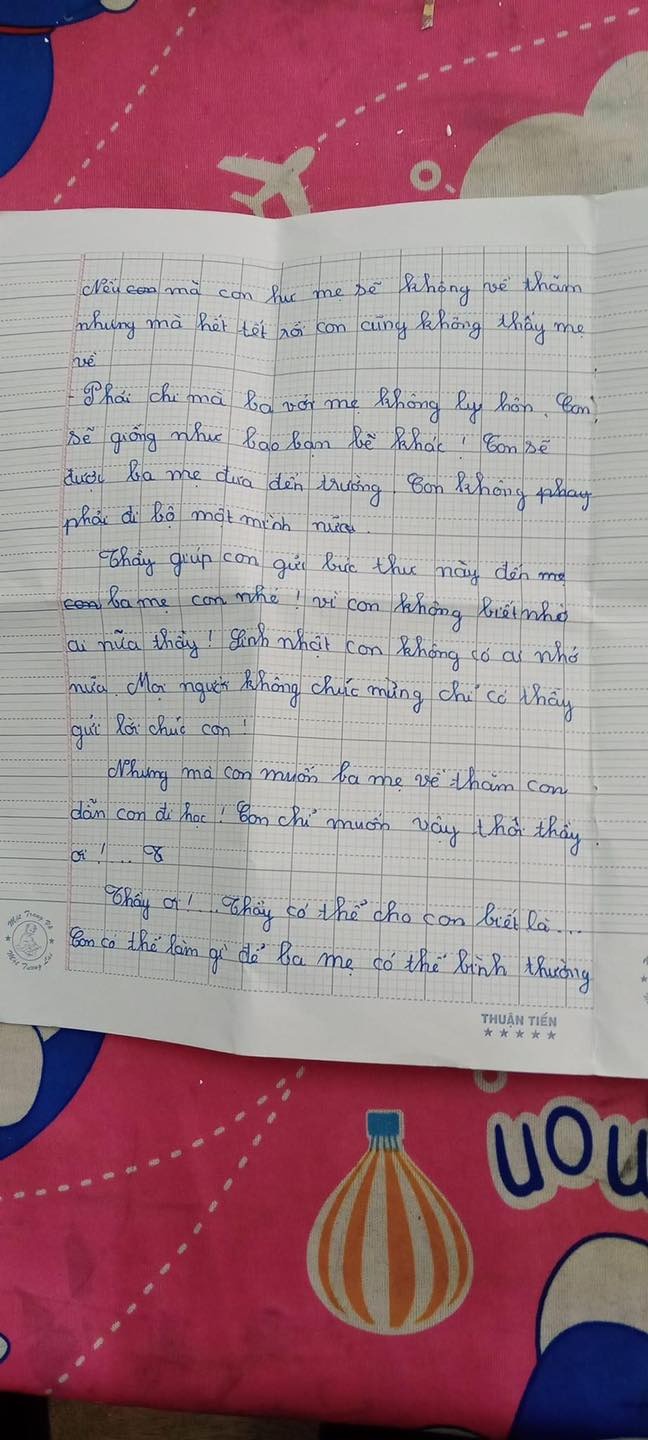 Nếu con mà con hư mẹ sẽ không về thăm
nhưng mà hết tết rồi con cũng không thấy mẹ
về
- Phải chi mà ba với mẹ không ly hôn. Con
sẽ giống như bao bạn bè khác! Con sẽ
được ba mẹ đưa đến trường. Con không phay
phải đi bộ một mình nữa.
Thầy giúp con gửi bức thư này đến mẹ
con ba mẹ con nhé! vì con không biết nhờ
ai nữa thầy! Sinh nhật con không có ai nhớ
nữa. Mọi người không chúc mừng chỉ có thầy
gửi lời chúc con!
Nhưng mà con muốn ba mẹ về thăm con
dẫn con đi học! Con chỉ muốn vậy thôi thầy
ơi!...
Thầy ơi!... Thầy có thể cho con biết là...
Con có thể làm gì để ba mẹ có thể bình thường
THUẬN TIẾN
UON